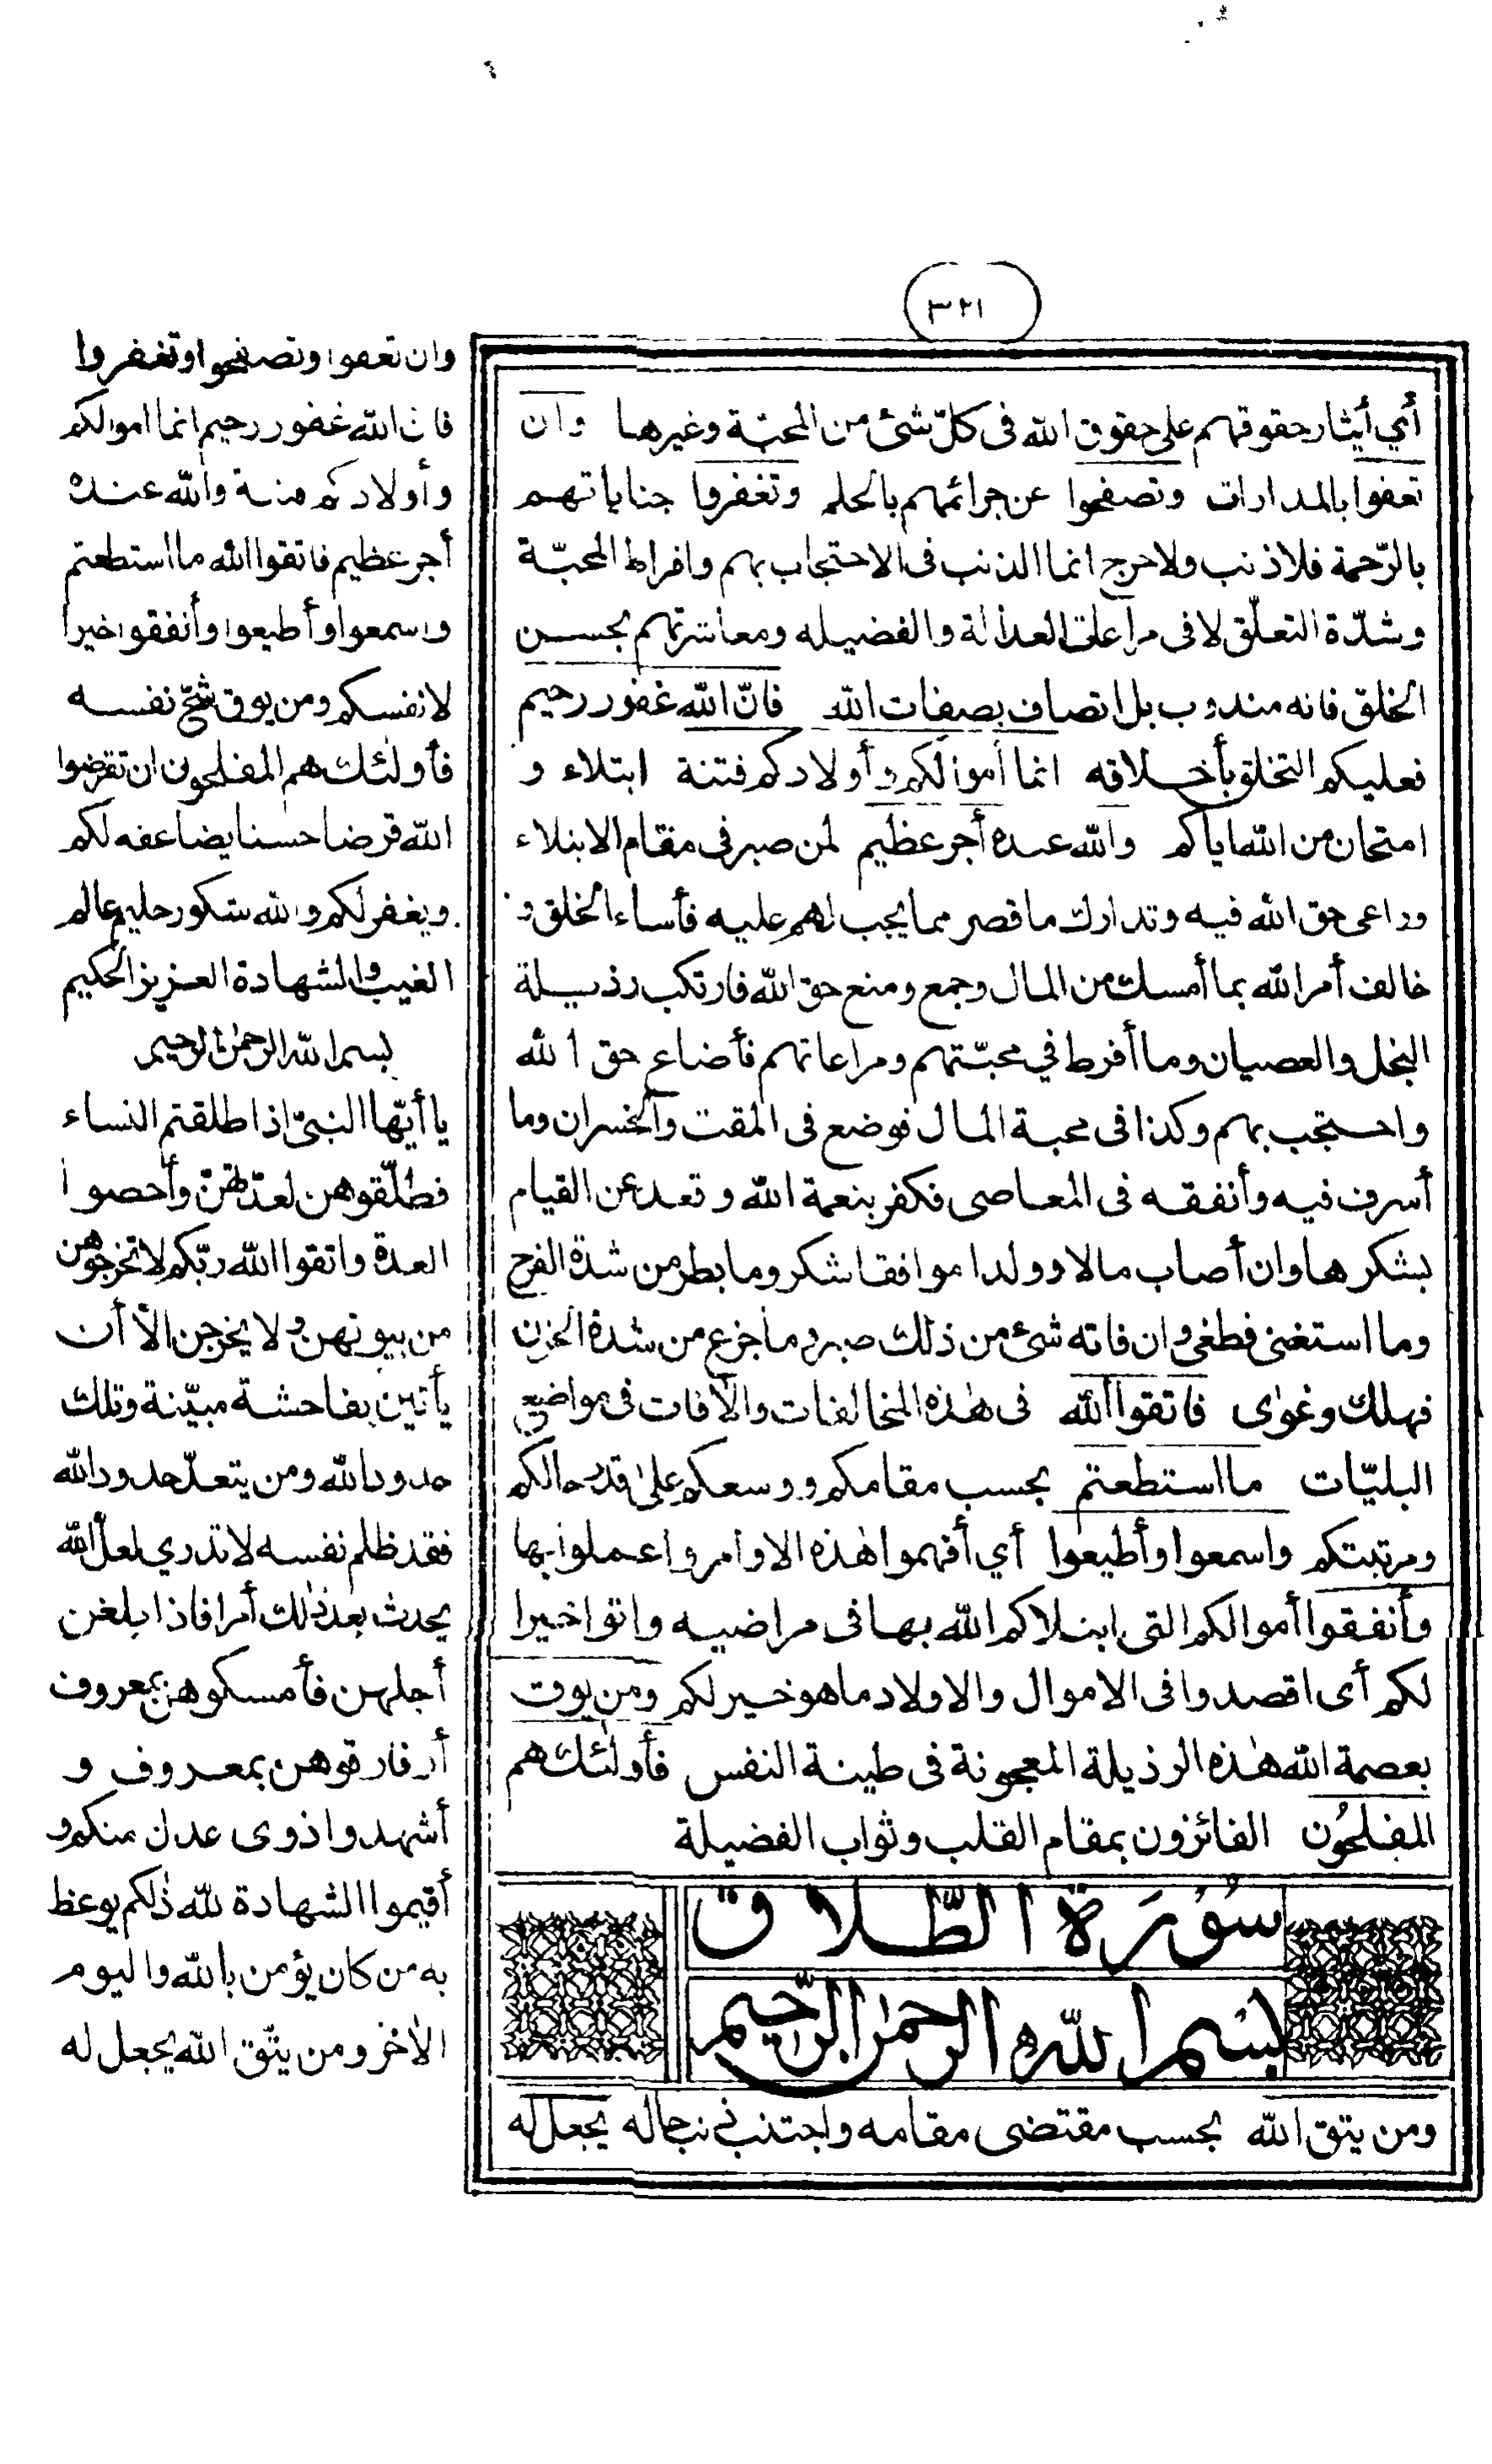 ٣٢١
أي أيثار حقوقهم على حقوق الله فى كلّ شئ من المحبّة وغيرها وان
تعفوا بالمدارات وتصفحوا عن جرائمهم بالحلم وتغفروا جناياتهم
بالرّحمة فلا ذنب ولا حرج انما الذنب فى الاحتجاب بهم وافراط المحبّة
وشدّة التعلّق لا فى مراعات العدالة والفضيله ومعاشرتهم بحسن
الخلق فانه مندوب بل اتصاف بصفات الله فانّ الله غفور رحيم
فعليكم التخلق بأخلاقه انما أموالكم وأولادكم فتنة ابتلاء و
امتحان من الله اياكم والله عنده أجر عظيم لمن صبر فى مقام الابتلاء
وراعى حق الله فيه وتدارك ما قصر مما يجب لهم عليه فأساء الخلق و
خالف أمر الله بما أمسك من المال وجمع ومنع حق الله فارتكب رذيلة
البخل والعصيان وما أفرط في محبّتهم ومراعاتهم فأضاع حق الله
واحتجب بهم وكذا فى محبة المال فوضع فى المقت والخسران وما
أسرف فيه وأنفقه فى المعاصى فكفر بنعمة الله وتعد عن القيام
بشكرها وان أصاب مالا وولدا موافقا شكر وما بطر من شدة الفرح
وما استغنى فطغى وان فاته شئ من ذلك صبر وما جزع من شدة الحزن
فهلك وغوى فاتقوا الله فى هذه المخالفات والآفات فى مواضع
البليّات ما استطعتم بحسب مقامكم ووسعكم على قدر حالكم
ومرتبتكم واسمعوا وأطيعوا أي أفهموا هذه الاوامر واعملوا بها
وأنفقوا أموالكم التى ابتلاكم الله بها فى مراضيه واتوا خيرا
لكم أى اقصدوا فى الاموال والاولاد ما هو خير لكم ومن يوق
بعصمة الله هذه الرذيلة المعجونة فى طينة النفس فأولئك هم
المفلحون الفائزون بمقام القلب وثواب الفضيلة
سورة الطّلاق
بسم الله الرحمن الرحيم
ومن يتق الله بحسب مقتضى مقامه واجتنب يجعل له
وان تعفوا وتصفحوا وتغفروا
فان الله غفور رحيم انما اموالكم
وأولادكم فتنة والله عنده
أجر عظيم فاتقوا الله ما استطعتم
واسمعوا وأطيعوا وأنفقوا خيرا
لانفسكم ومن يوق شحّ نفسه
فأولئك هم المفلحون ان تقرضوا
الله قرضا حسنا يضاعفه لكم
ويغفر لكم والله شكور حليم عالم
الغيب والشهادة العزيز الحكيم
بسم الله الرحمن الرحيم
يا أيّها النبىّ اذا طلقتم النساء
فطلّقوهن لعدّتهنّ وأحصوا
العدة واتقوا الله ربّكم لا تخرجوهن
من بيوتهن ولا يخرجن الاّ أن
يأتين بفاحشة مبيّنة وتلك
حدود الله ومن يتعدّ حدود الله
فقد ظلم نفسه لا تدري لعلّ الله
يحدث بعد ذلك أمرا فاذا بلغن
أجلهن فأمسكوهن بمعروف
أو فارقوهن بمعروف و
أشهدوا ذوى عدل منكم و
أقيموا الشهادة للّه ذلكم يوعظ
به من كان يؤمن بالله واليوم
الآخر ومن يتّق الله يجعل له